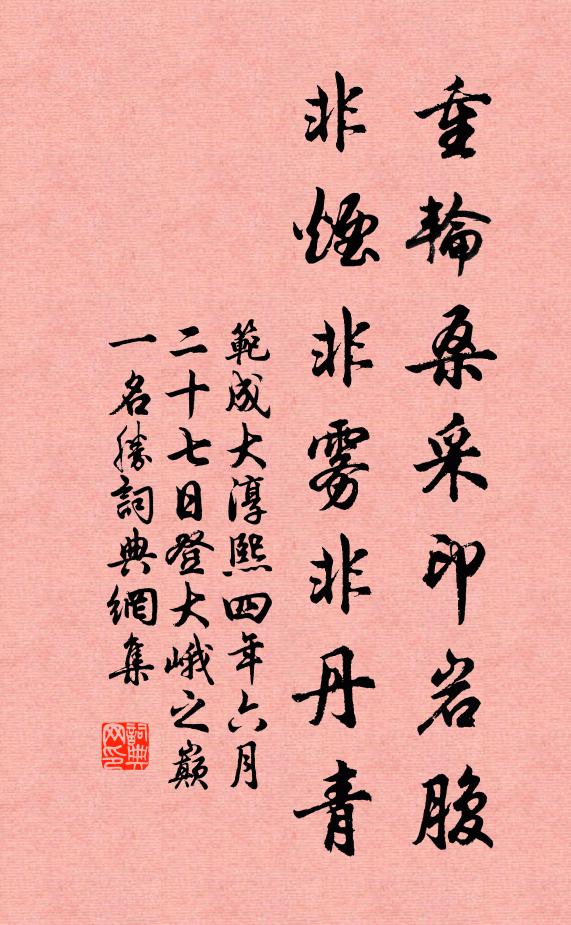 重輪桑采印岩腹
非煙非雾非丹青
範成大淳熙四年六月
二十七日登大峨之巔
一名勝詞典網集
詞典网印